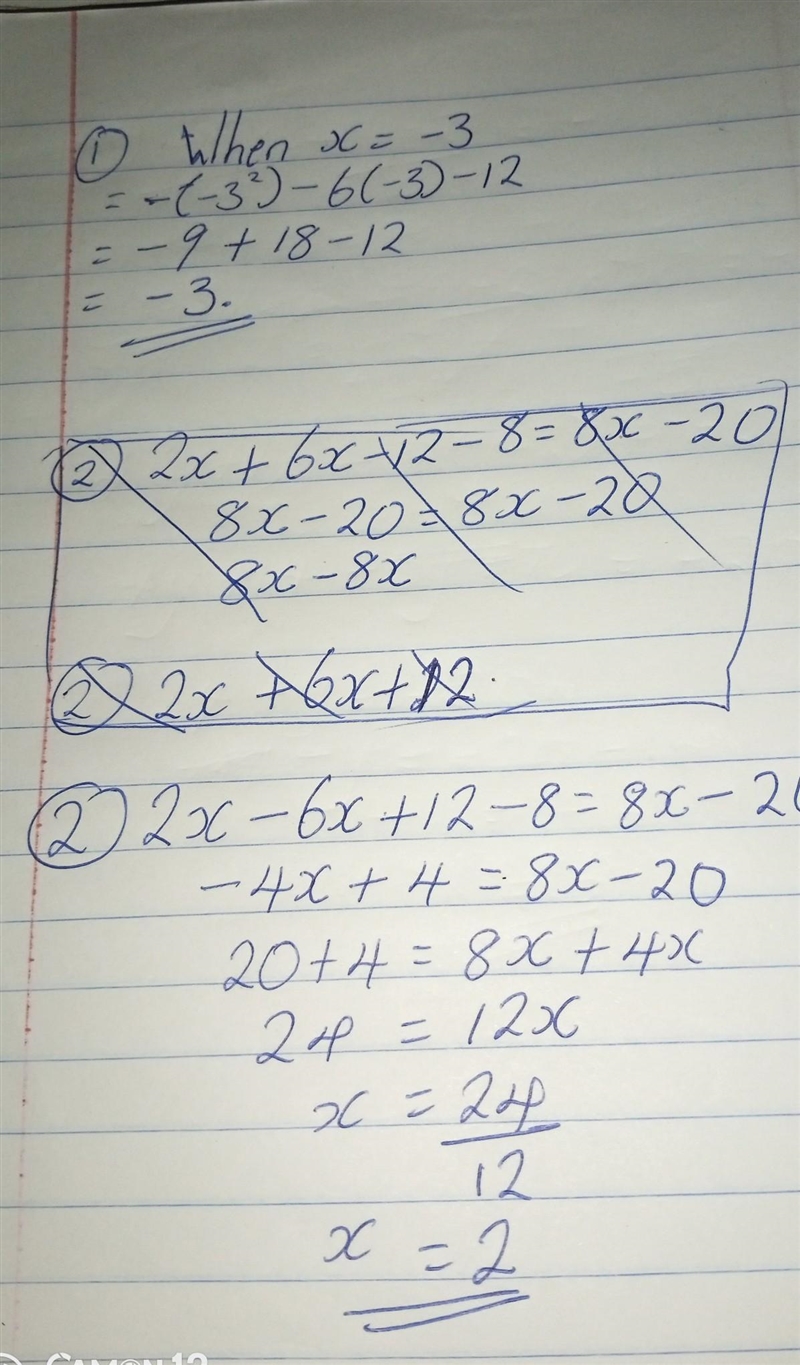 ① When x = -3
= -(-3²) - 6(-3) - 12
= -9 + 18 - 12
= -3.
② 2x + 6x - 12 - 8 = 8x - 20
8x - 20 = 8x - 20
8x - 8x
② 2x + 6x + 12.
② 2x - 6x + 12 - 8 = 8x - 20
-4x + 4 = 8x - 20
20 + 4 = 8x + 4x
24 = 12x
x = 24
12
x = 2
CAMON 12